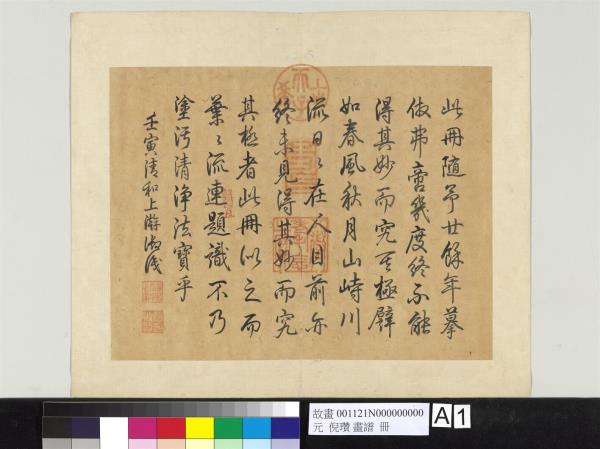 此冊隨予廿餘年摹
倣弗啻幾度終不能
得其妙而究其極譬
如春風秋月山峙川
流日〻在人目前亦
終未見得其妙而究
其極者此冊似之而
葉〻流連題識不乃
塗污清浄法寶乎
壬寅清和上游御識
故畫 001121N000000000
元 倪瓚 畫譜 冊
A 1